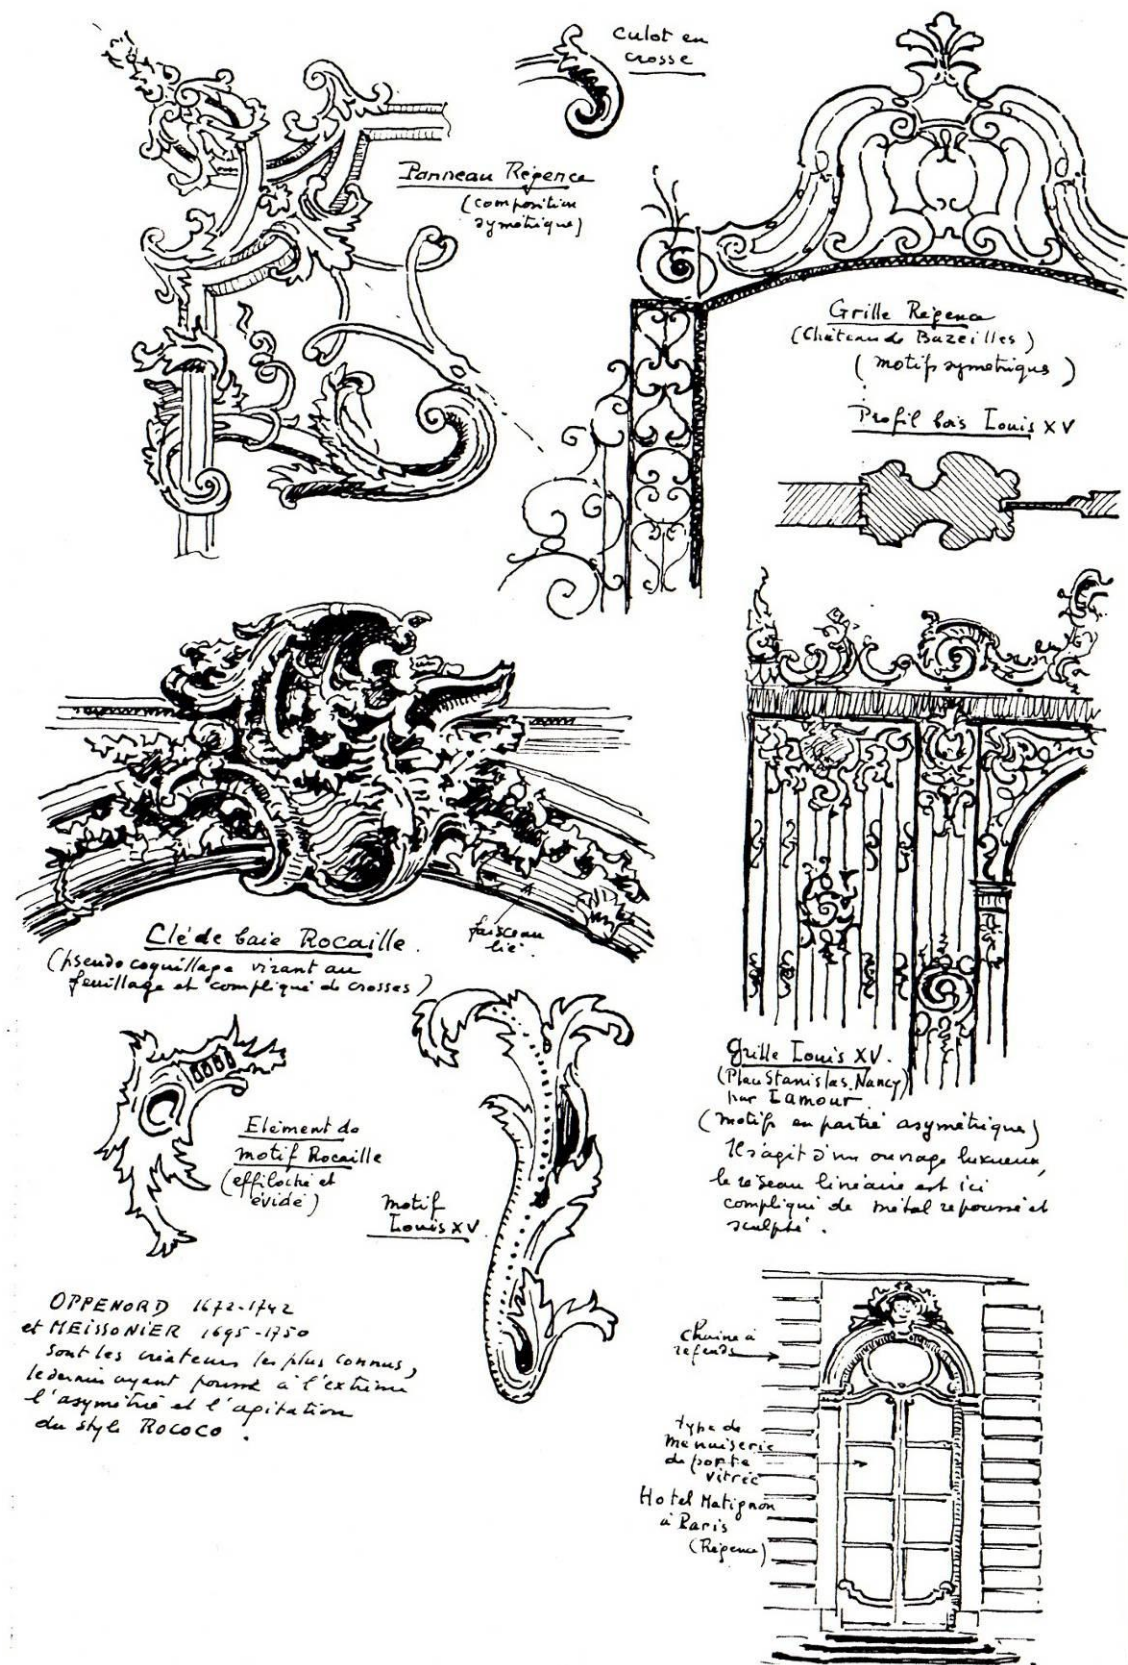 Culot en
crosse
Panneau Régence
(composition
symétrique)
Grille Régence
(Château de Bazeilles)
(motifs symetriques)
Profil bois Louis XV
Clé de baie Rocaille.
(pseudo coquillage virant au
feuillage et compliqué de crosses)
faisceau
lié.
Grille Louis XV.
(Place Stanislas, Nancy)
par Lamour
(motifs en partie asymétrique)
Il s'agit d'un ouvrage luxueux,
le réseau linéaire est ici
compliqué de métal repoussé et
sculpté.
Elément de
motif Rocaille
(effiloché et
évidé)
motif
Louis XV
OPPENORD 1672-1742
et MEISSONIER 1695-1750
sont les créateurs les plus connus,
le dernier ayant poussé à l'extrême
l'asymétrie et l'agitation
du style ROCOCO.
Chaine à
refends
type de
menuiserie
de porte
vitrée
Hotel Matignon
à Paris
(Régence)